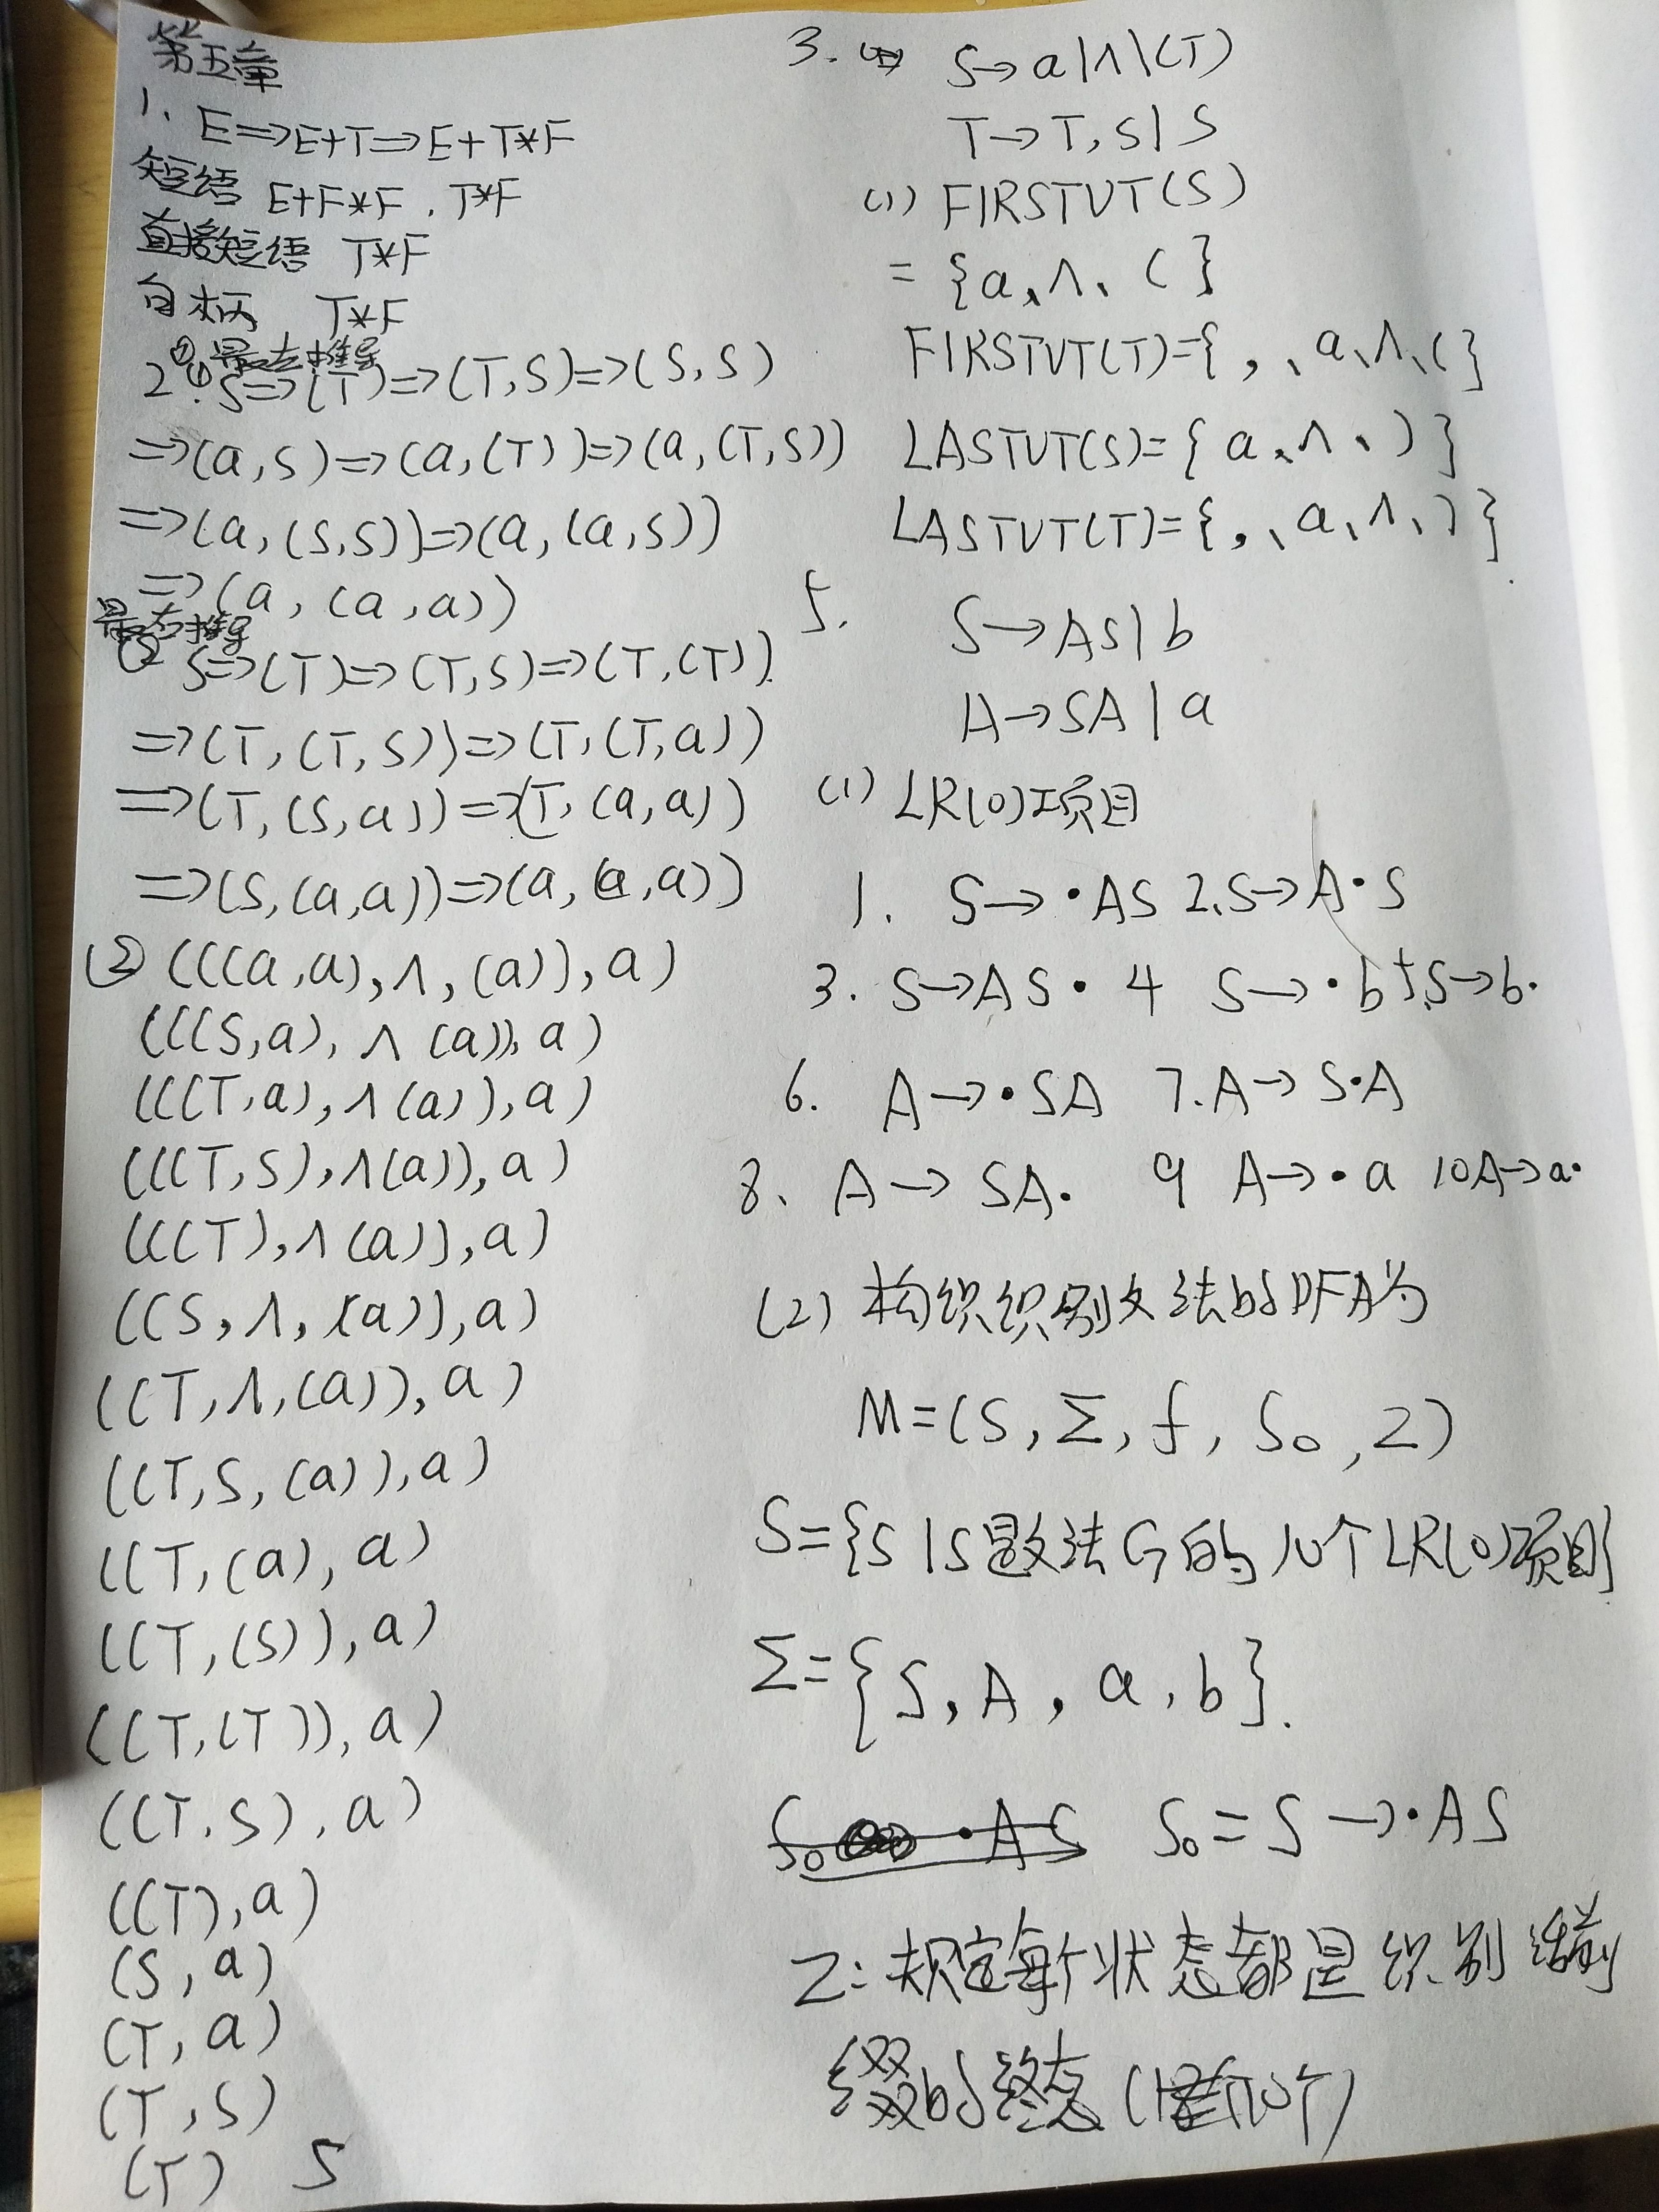 第五章
1. E=>E+T=>E+T*F
短语 E+F*F . T*F
直接短语 T*F
句柄 T*F
① 最左推导
2. ① S=>(T)=>(T,S)=>(S,S)
=>(a,S)=>(a,(T))=>(a,(T,S))
=>(a,(S,S))=>(a,(a,S))
=>(a,(a,a))
最右推导
② S=>(T)=>(T,S)=>(T,(T)).
=>(T,(T,S))=>(T,(T,a))
=>(T,(S,a))=>(T,(a,a))
=>(S,(a,a))=>(a,(a,a))
(2) (((a,a),∧,(a)),a)
(((S,a),∧(a)),a)
(((T,a),∧(a)),a)
(((T,S),∧(a)),a)
(((T),∧(a)),a)
((S,∧,(a)),a)
((T,∧,(a)),a)
((T,S,(a)),a)
((T,(a),a)
((T,(S)),a)
((T,(T)),a)
((T,S),a)
((T),a)
(S,a)
(T,a)
(T,S)
(T) S
3. S→a|∧|(T)
T→T,S|S
(1) FIRSTVT(S)
={a、∧、(}
FIRSTVT(T)={,、a、∧、(}
LASTVT(S)={a、∧、)}
LASTVT(T)={,、a、∧、)}
5. S→AS|b
A→SA|a
(1) LR(0)项目
1. S→·AS 2.S→A·S
3. S→AS· 4 S→·b 5.S→b·
6. A→·SA 7.A→S·A
8. A→SA· 9 A→·a 10A→a·
(2) 构织识别文法的DFA为
M=(S,Σ,f,S₀,Z)
S={S|S是文法G的10个LR(0)项目}
Σ={S,A,a,b}.
·AS S₀=S→·AS
Z:规定每个状态都是识别活前
缀的终态